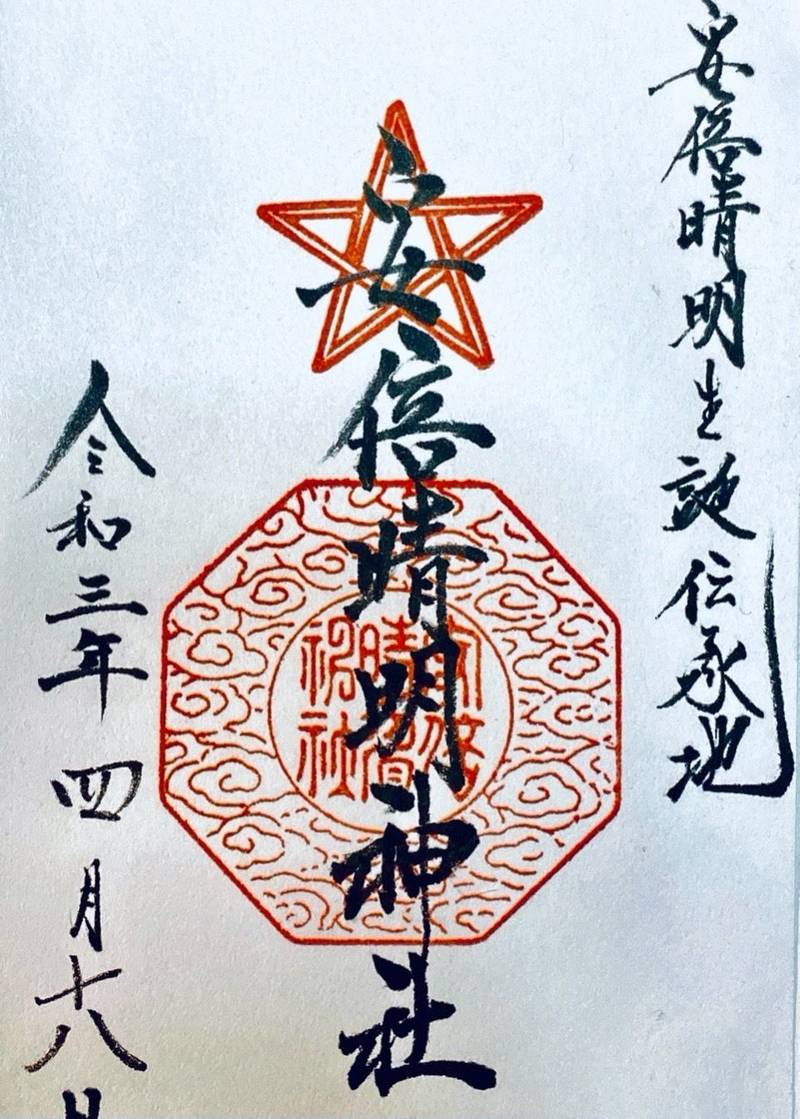 安倍晴明生誕伝承地
安倍晴明神社
令和三年四月十八日